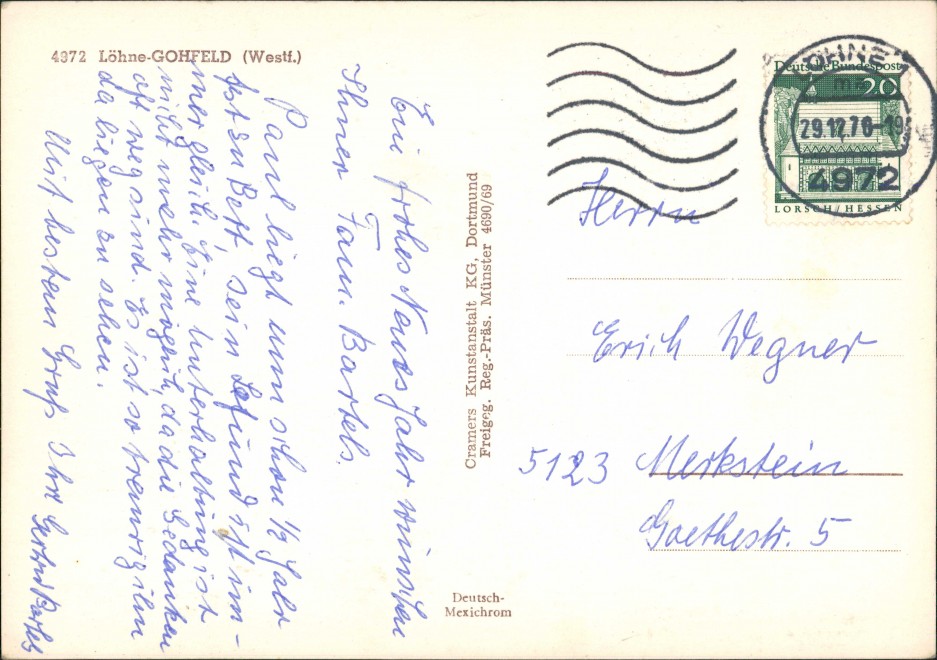 4972 Löhne-GOHFELD (Westf.)
Ein frohes Neues Jahr wünschen
Ihnen Fam. Bartels.
Paul liegt nun schon 1/2 Jahr
fest zu Bett, sein Befund ist im-
mer gleich. Eine Unterhaltung ist
nicht mehr möglich, da die Gedanken
oft weg sind. Es ist so traurig ihn
da liegen zu sehen.
Mit bestem Gruß Ihre Gertrud Bartels
Cramers Kunstanstalt KG, Dortmund
Freigeg. Reg.-Präs. Münster 4690/69
Deutsch-
Mexichrom
Deutsche Bundespost
20
LORSCH/HESSEN
LÖHNE 1
29.12.70-19
4972
Herrn
Erich Wegner
5123 Merkstein
Goethestr. 5